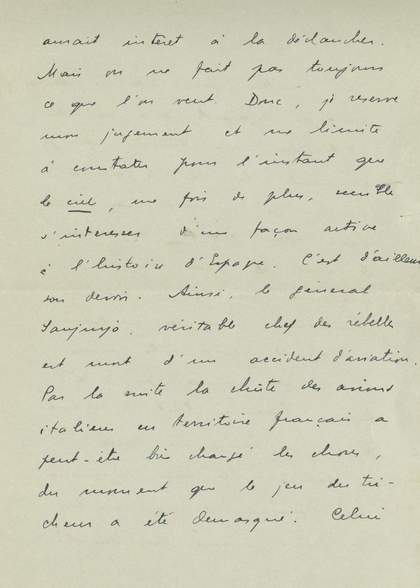 aurait intérêt à la déclancher.
Mais on ne fait pas toujours
ce que l'on veut. Donc, je réserve
mon jugement et me limite
à constater pour l'instant que
le ciel, une fois de plus, semble
s'intéresser d'une façon active
à l'histoire d'Espagne. C'est d'ailleurs
son devoir. Ainsi, le général
Sanjurjo, véritable chef des rébelles
est mort d'un accident d'aviation.
Par la suite la chûte des avions
italiens en territoire français a
peut-être bien changé les choses,
du moment que le jeu des tri-
cheurs a été démasqué. Celui